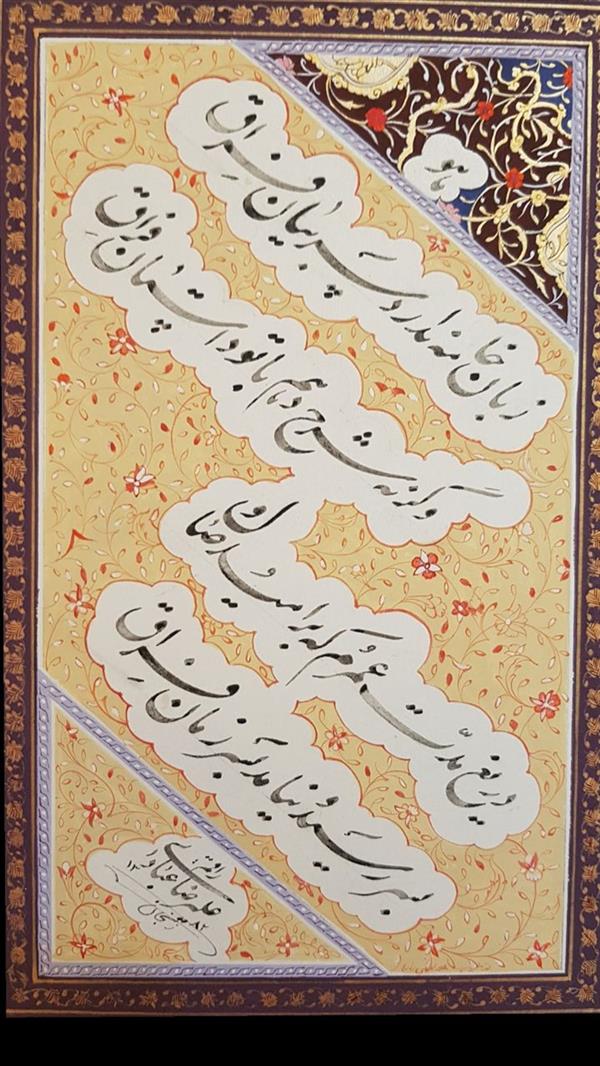 یا هو
زبان خامه ندارد سر بیان فراق
وگرنه شرح دهم با تو داستان فراق
دریغ مدّت عمرم که بر امید وصال
بسر رسید و نیامد بسر زمان فراق
علیرضا
۸۲